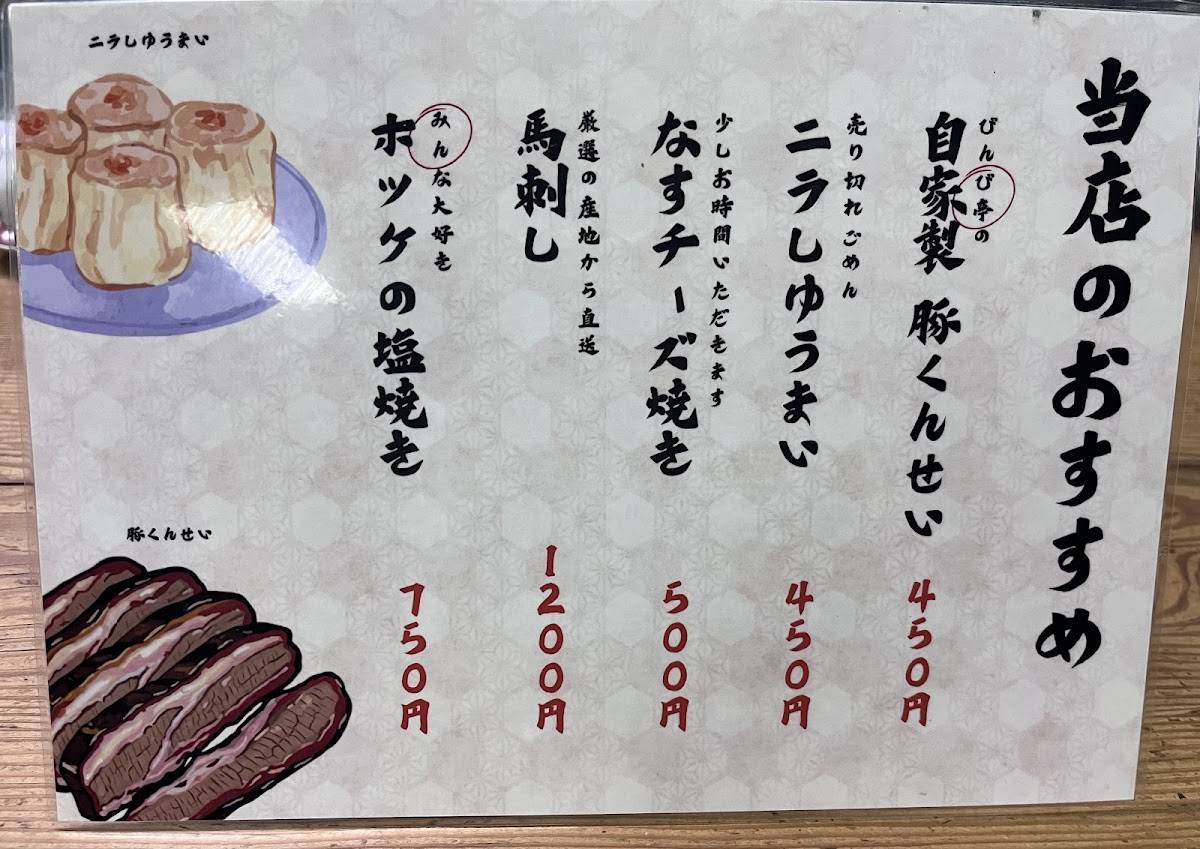 当店のおすすめ
びんび亭の
自家製 豚くんせい
450円
売り切れごめん
ニラしゆうまい
450円
少しお時間いただきます
なすチーズ焼き
500円
厳選の産地から直送
馬刺し
1200円
みんな大好き
ホッケの塩焼き
750円
ニラしゆうまい
豚くんせい